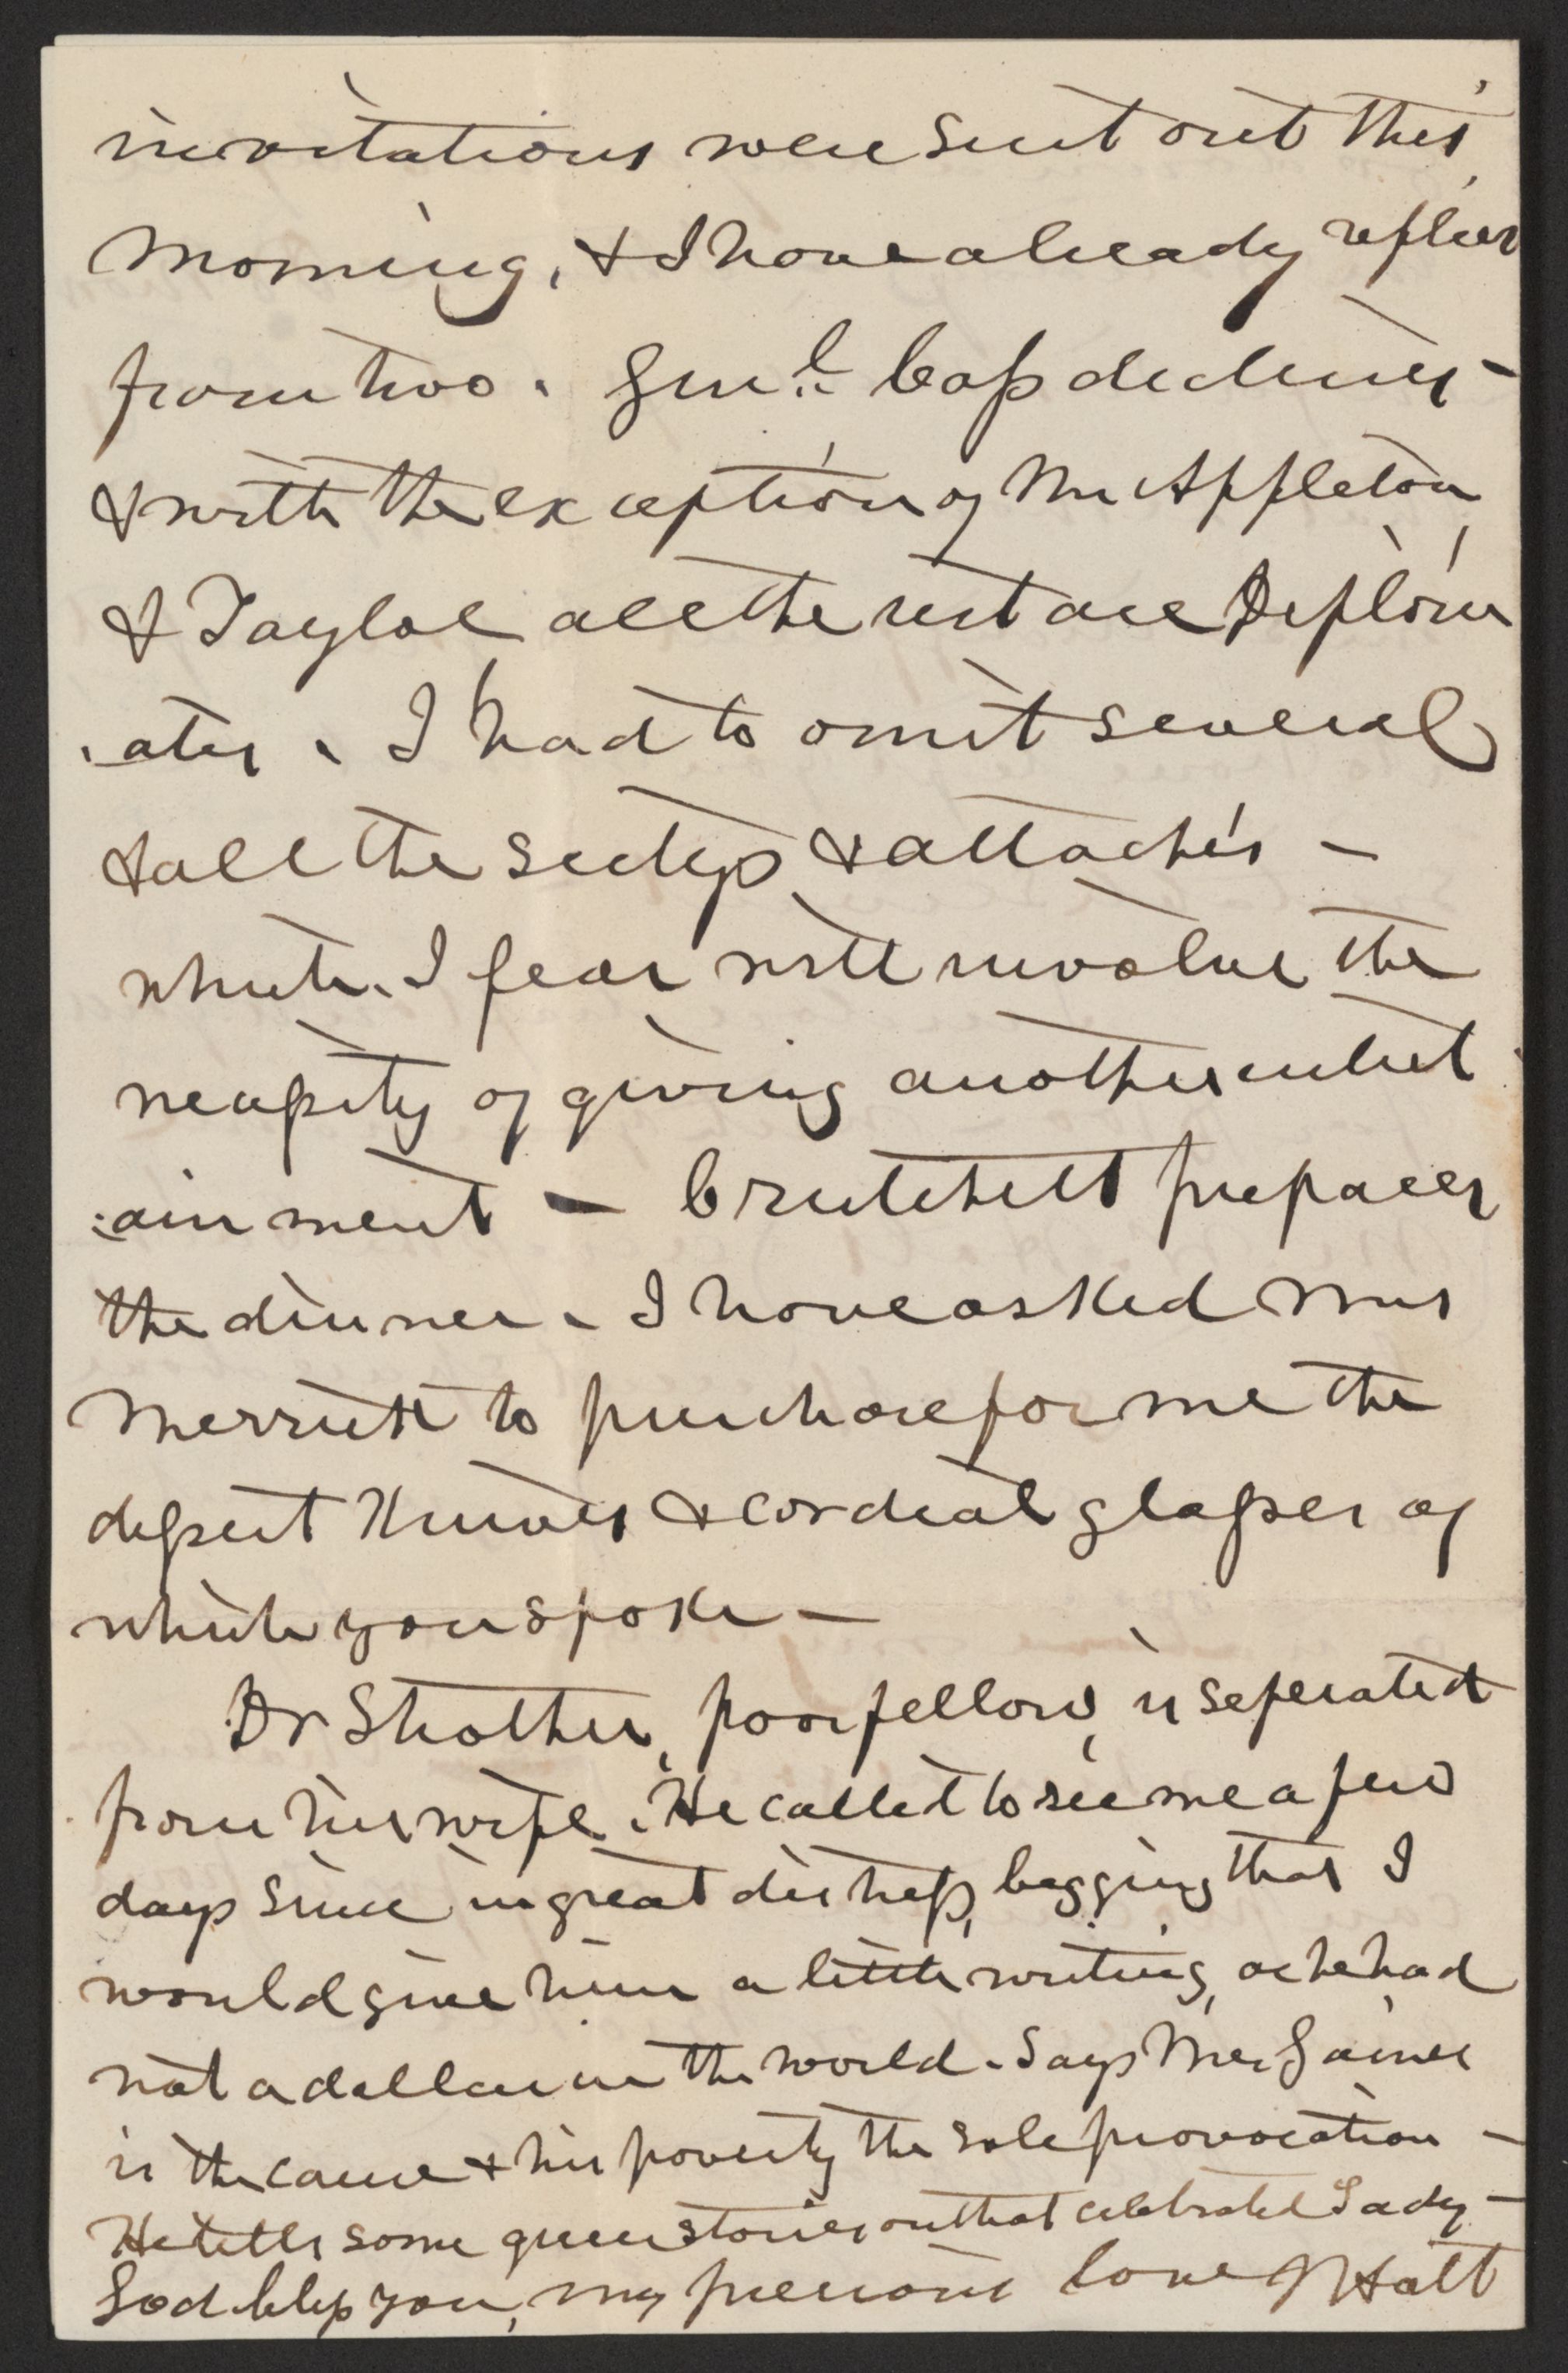 invitations were sent out this
morning, & I have already replies
from two. Genl. Cass declines -
& with the exception of Mr Appleton
& Tayloe all the rest are Diplom
-ates. I had to omit several
& all the sectys & attachés -
which, I fear will involve the
necessity of giving another entert
:ainment - Crutchett prepares
the dinner. I have asked Mrs
Merrick to purchase for me the
dessert knives & cordial glasses of
which you spoke -
Dr Strother, poor fellow, is seperated
from his wife. He called to see me a few
days since in great distress, begging that I
would give him a little writing, as he had
not a dollar in the world. Says Mrs Gaines
is the cause & his poverty the sole provocation -
He tells some queer stories on that celebrated Lady -
God bless you, my precious love J Holt